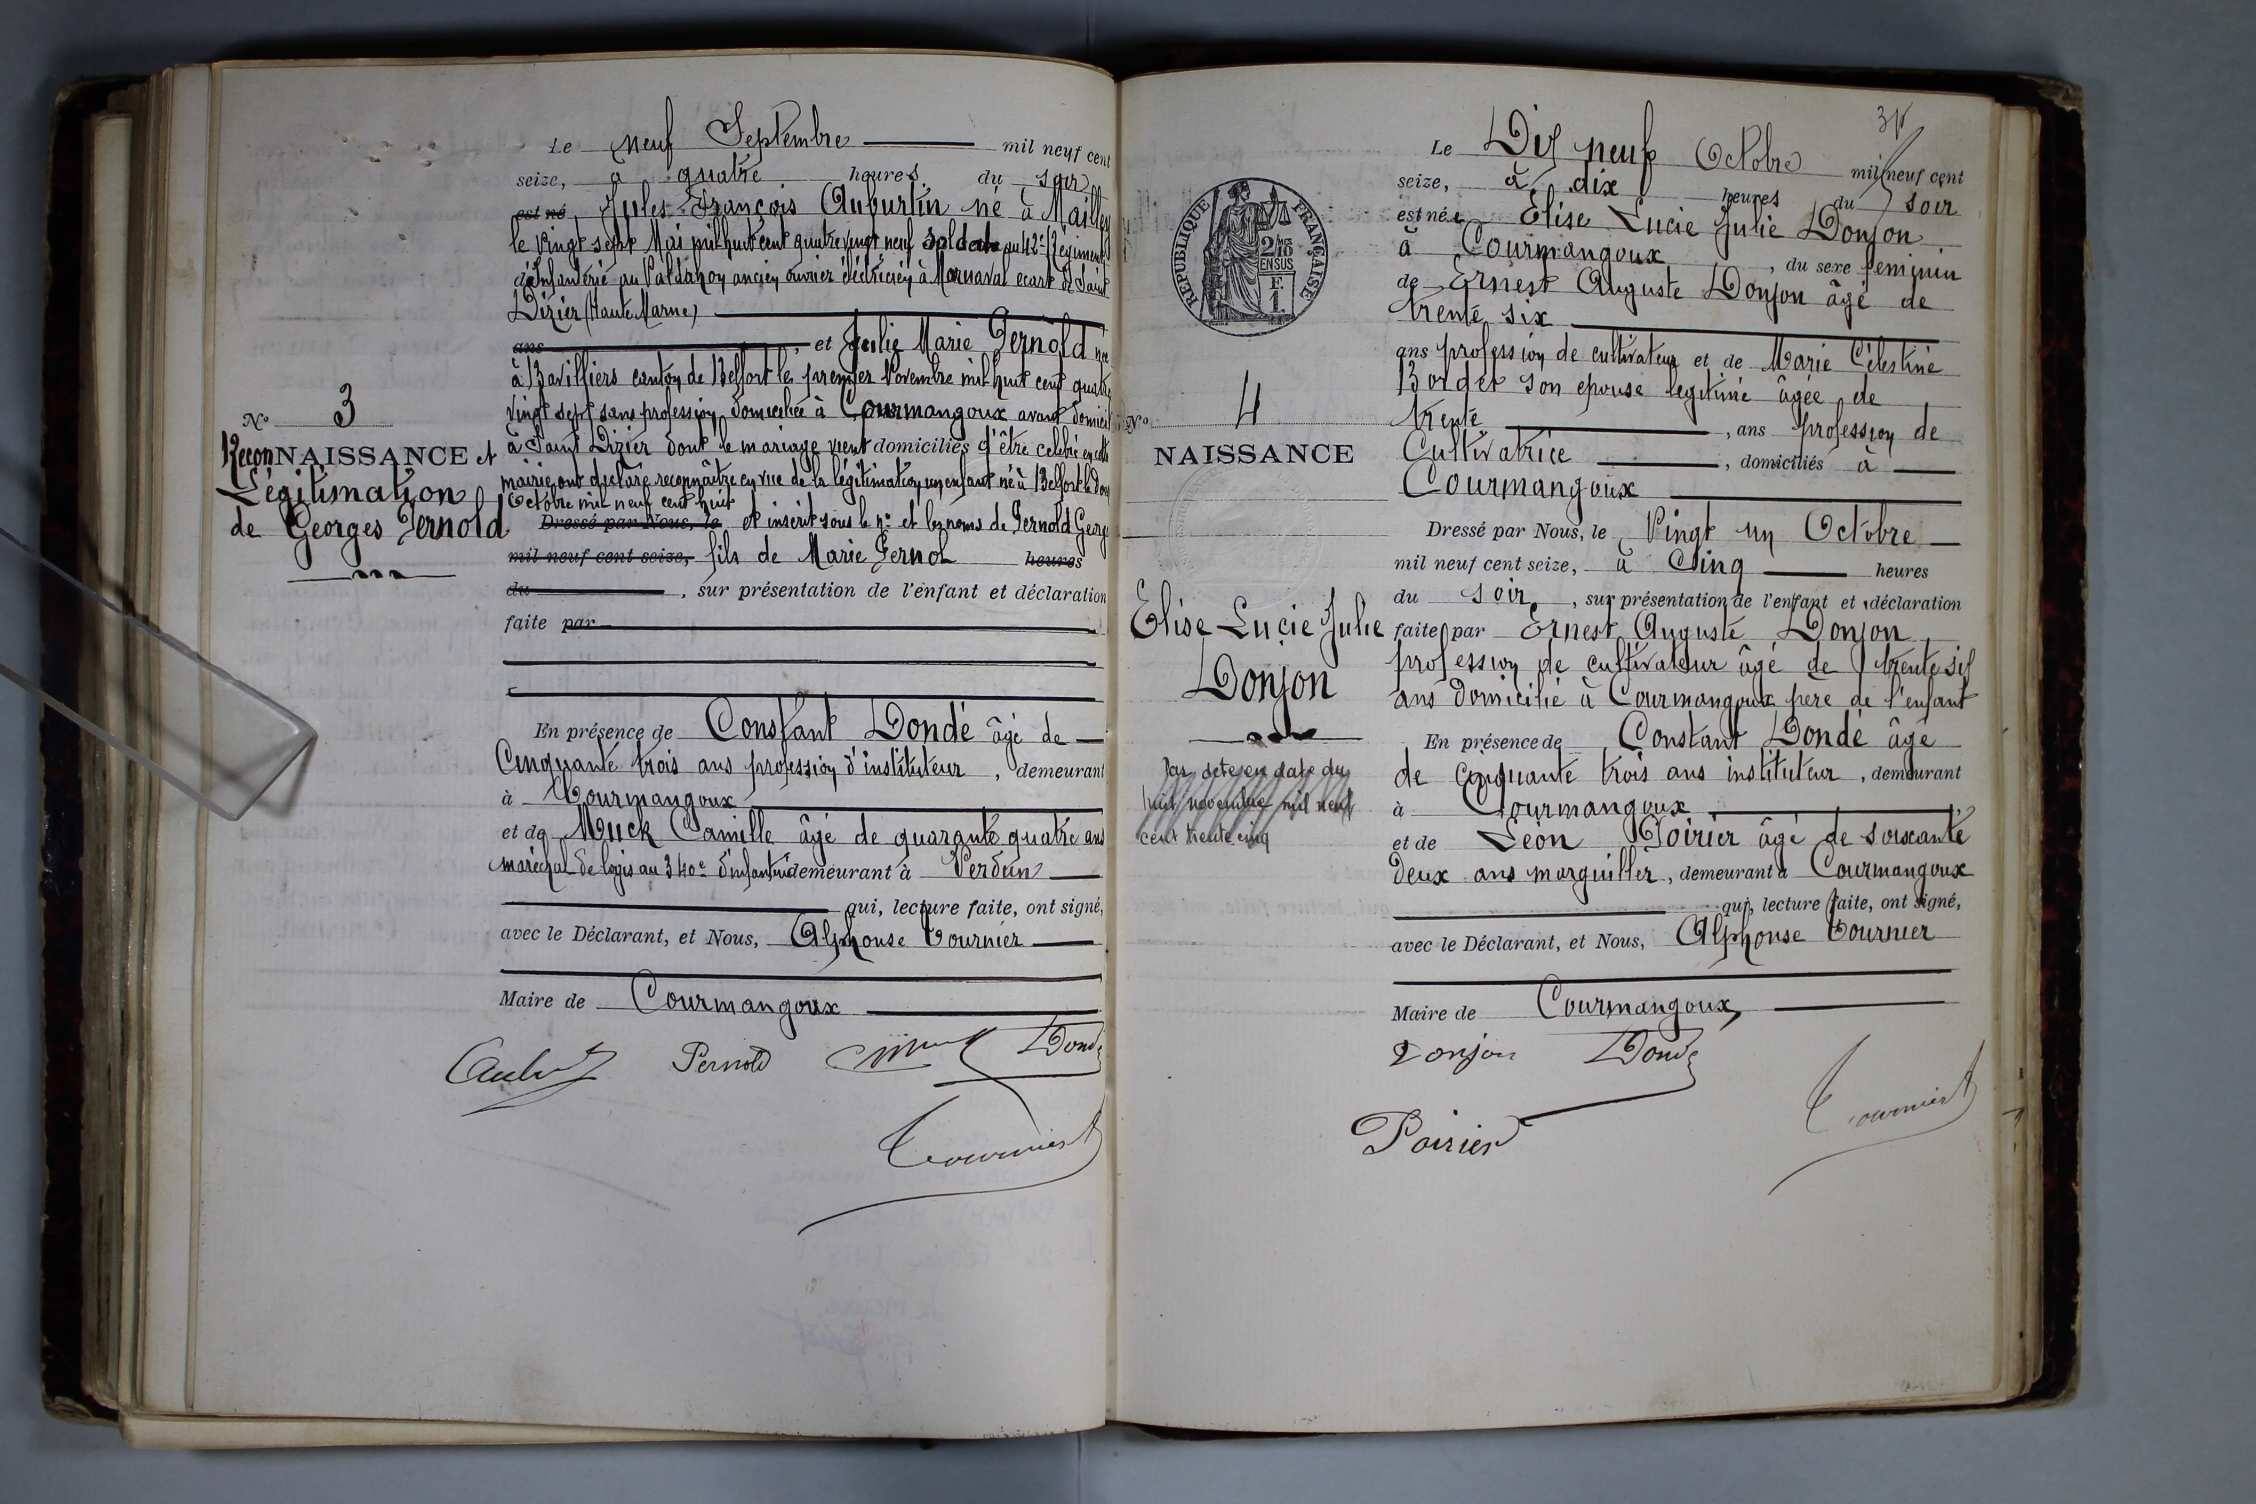 Le neuf Septembre mil neuf cent
seize, à quatre heures du soir
est né, Jules François Auburtin né à Mailley
le vingt sept Mai mil huit cent quatre vingt neuf soldat au 42e Régiment
d'Infanterie au Valdahon ancien ouvrier électricien à Marnaval ecart de Saint
Dizier (Haute Marne)
ans et Julie Marie Pernold née
à Bavilliers canton de Belfort le premier Novembre mil huit cent quatre
vingt sept sans profession domiciliée à Courmangoux avant domicil
à Saint Dizier dont le mariage vient domiciliés d'être célébré en cette
mairie ont déclaré reconnaître en vue de la légitimation un enfant né à Belfort le douze
Octobre mil neuf cent huit
Dressé par Nous, le et inscrit sous le no et les noms de Pernold Georg
mil neuf cent seize, fils de Marie Pernol heures
du , sur présentation de l'enfant et déclaration
faite par
En présence de Constant Dondé âgé de
Cinquante trois ans profession d'instituteur, demeurant
à Courmangoux
et de Muck Camille âgé de quarante quatre ans
maréchal de logis au 340e d'infanterie demeurant à Verdun
qui, lecture faite, ont signé,
avec le Déclarant, et Nous, Alphonse Tournier
Maire de Courmangoux
Pernold Dondé
Tournier
No 3
ReconNAISSANCE et
Légitimation
de Georges Pernold
Le Dix neuf Octobre mil neuf cent
seize, à dix heures du soir
est née Elise Lucie Julie Donjon
à Courmangoux, du sexe feminin
de Ernest Auguste Donjon âgé de
trente six
ans profession de cultivateur et de Marie Célestine
Bordet son epouse legitime âgée de
trente, ans profession de
Cultivatrice, domiciliés à
Courmangoux
Dressé par Nous, le Vingt un Octobre
mil neuf cent seize, à Cinq heures
du soir, sur présentation de l'enfant et déclaration
faite par Ernest Auguste Donjon
profession de cultivateur âgé de trente six
ans domicilié à Courmangoux pere de l'enfant
En présence de Constant Dondé âgé
de cinquante trois ans instituteur, demeurant
à Courmangoux
et de Léon Poirier âgé de soixante
deux ans marguillier, demeurant à Courmangoux
qui, lecture faite, ont signé,
avec le Déclarant, et Nous, Alphonse Tournier
Maire de Courmangoux
Donjon Dondé
Poirier Tournier
RÉPUBLIQUE FRANÇAISE
2/10
EN SUS
No 4
NAISSANCE
Elise Lucie Julie
Donjon
en date du
huit novembre mil neuf
cent trente cinq